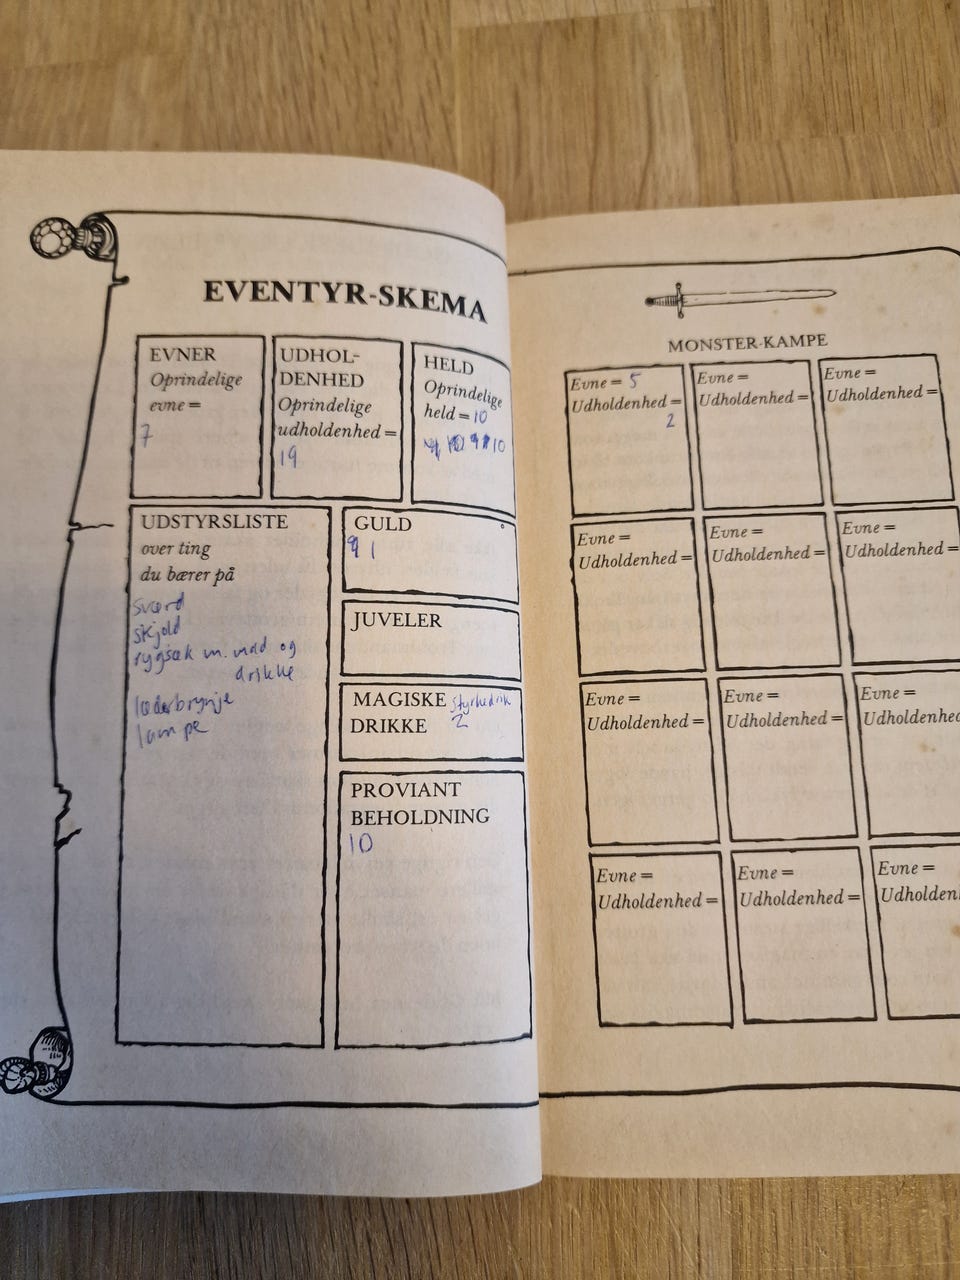 EVENTYR-SKEMA
EVNER
Oprindelige
evne =
7
UDHOL-
DENHED
Oprindelige
udholdenhed =
19
HELD
Oprindelige
held = 10
10
UDSTYRSLISTE
over ting
du bærer på
sværd
skjold
rygsæk m. mad og
drikke
læderbrynje
lampe
GULD
9 1
JUVELER
MAGISKE styrkedrik
DRIKKE 2
PROVIANT
BEHOLDNING
10
MONSTER-KAMPE
Evne = 5
Udholdenhed =
2
Evne =
Udholdenhed =
Evne =
Udholdenhed =
Evne =
Udholdenhed =
Evne =
Udholdenhed =
Evne =
Udholdenhed =
Evne =
Udholdenhed =
Evne =
Udholdenhed =
Evne =
Udholdenhed
Evne =
Udholdenhed =
Evne =
Udholdenhed =
Evne =
Udholden